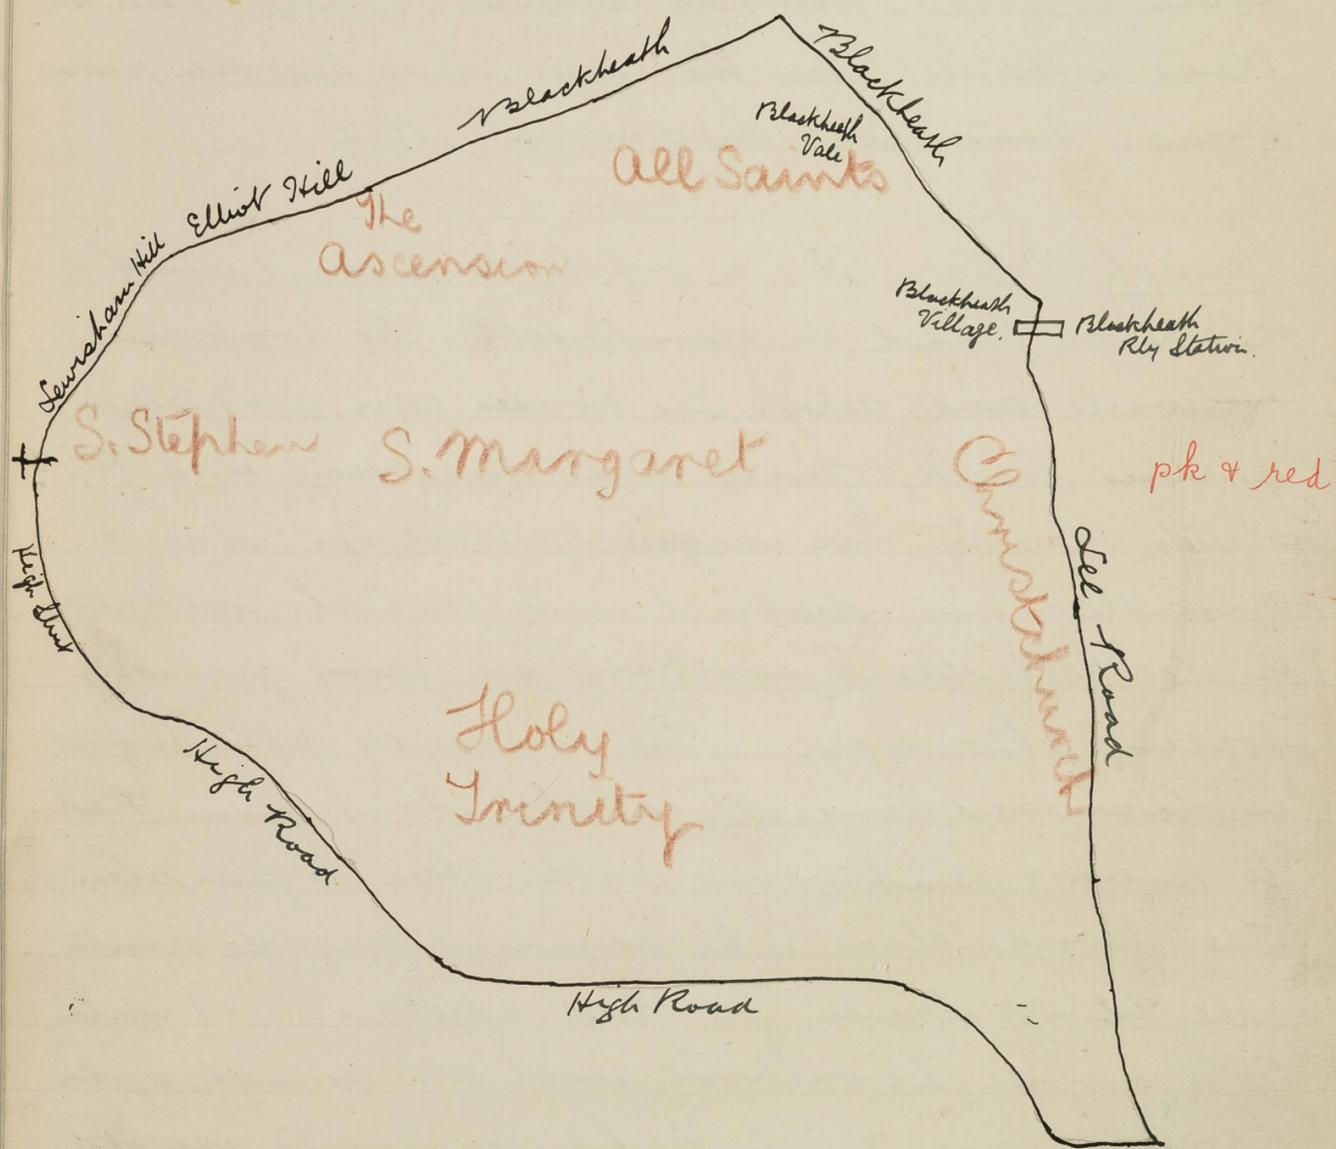 Blackheath
Blackheath
Blackheath
Vale
All Saints
Elliot Hill
The
Ascension
Lewisham Hill
Blackheath
Village.
Blackheath
Rly Station.
S. Stephen
S. Margaret
Christchurch
pk & red
High Street
Lee Road
Holy
Trinity
High Road
High Road